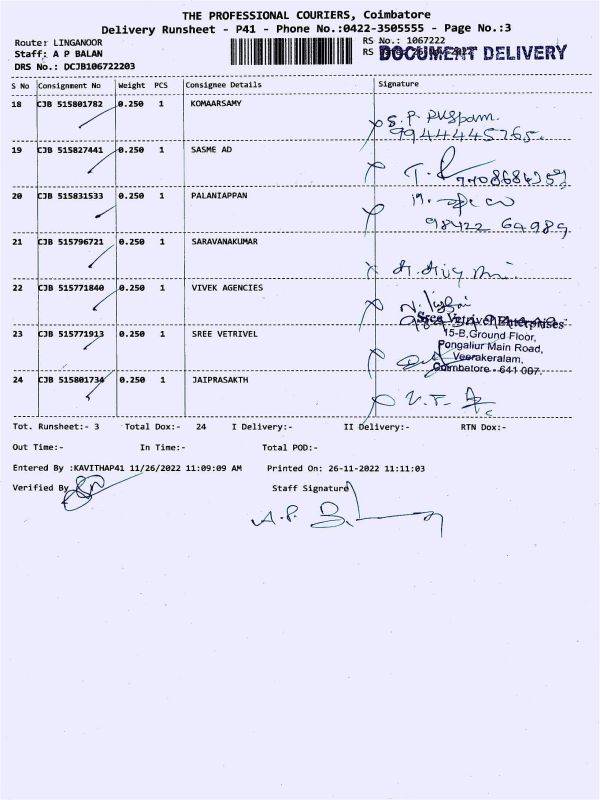 THE PROFESSIONAL COURIERS, Coimbatore
Delivery Runsheet - P41 - Phone No.:0422-3505555 - Page No.:3
Router LINGANOOR
RS No.: 1067222
Staff: A P BALAN
RS
DOCUMENT DELIVERY
DRS No.: DCJB106722203
S No Consignment No Weight PCS Consignee Details Signature
18 CJB 515801782 0.250 1 KOMAARSAMY
S. P. puspam.
9944445765.
19 CJB 515827441 0.250 1 SASME AD
20 CJB 515831533 0.250 1 PALANIAPPAN
98422 64989
21 CJB 515796721 0.250 1 SARAVANAKUMAR
22 CJB 515771840 0.250 1 VIVEK AGENCIES
Sree Vetrivel Enterprises
23 CJB 515771913 0.250 1 SREE VETRIVEL
15-B,Ground Floor,
Pongaliur Main Road,
Veerakeralam,
Coimbatore - 641 007.
24 CJB 515801734 0.250 1 JAIPRASAKTH
Tot. Runsheet:- 3 Total Dox:- 24 I Delivery:- II Delivery:- RTN Dox:-
Out Time:- In Time:- Total POD:-
Entered By :KAVITHAP41 11/26/2022 11:09:09 AM Printed On: 26-11-2022 11:11:03
Verified By Staff Signature
A.P.